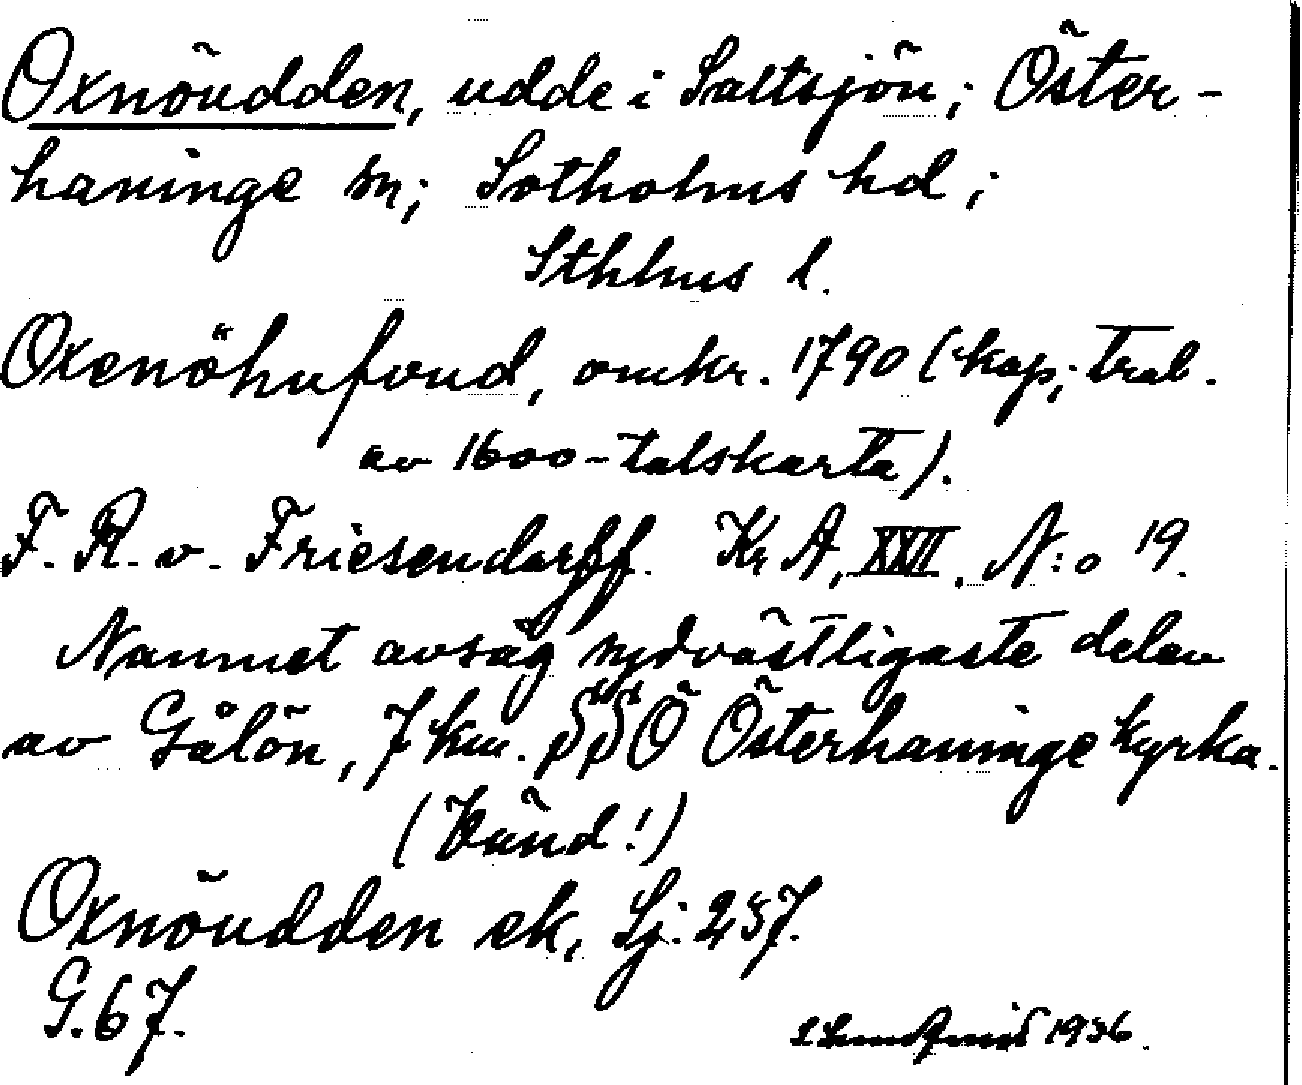 Oxnöudden, udde i Saltsjön; Öster-
haninge sn; Sotholms hd;
Sthlms l.
Oxenöhufvud, omkr. 1790 (kop; trol.
av 1600-talskarta).
F. R. v. Friesendorff. Kr A, XXII. N:o 19.
Namnet avsåg sydvästligaste delen
av Gålön, 7 km. SSÖ Österhaninge kyrka.
(Vänd!)
Oxnöudden ek, Sj: 257.
G. 67.
1936.